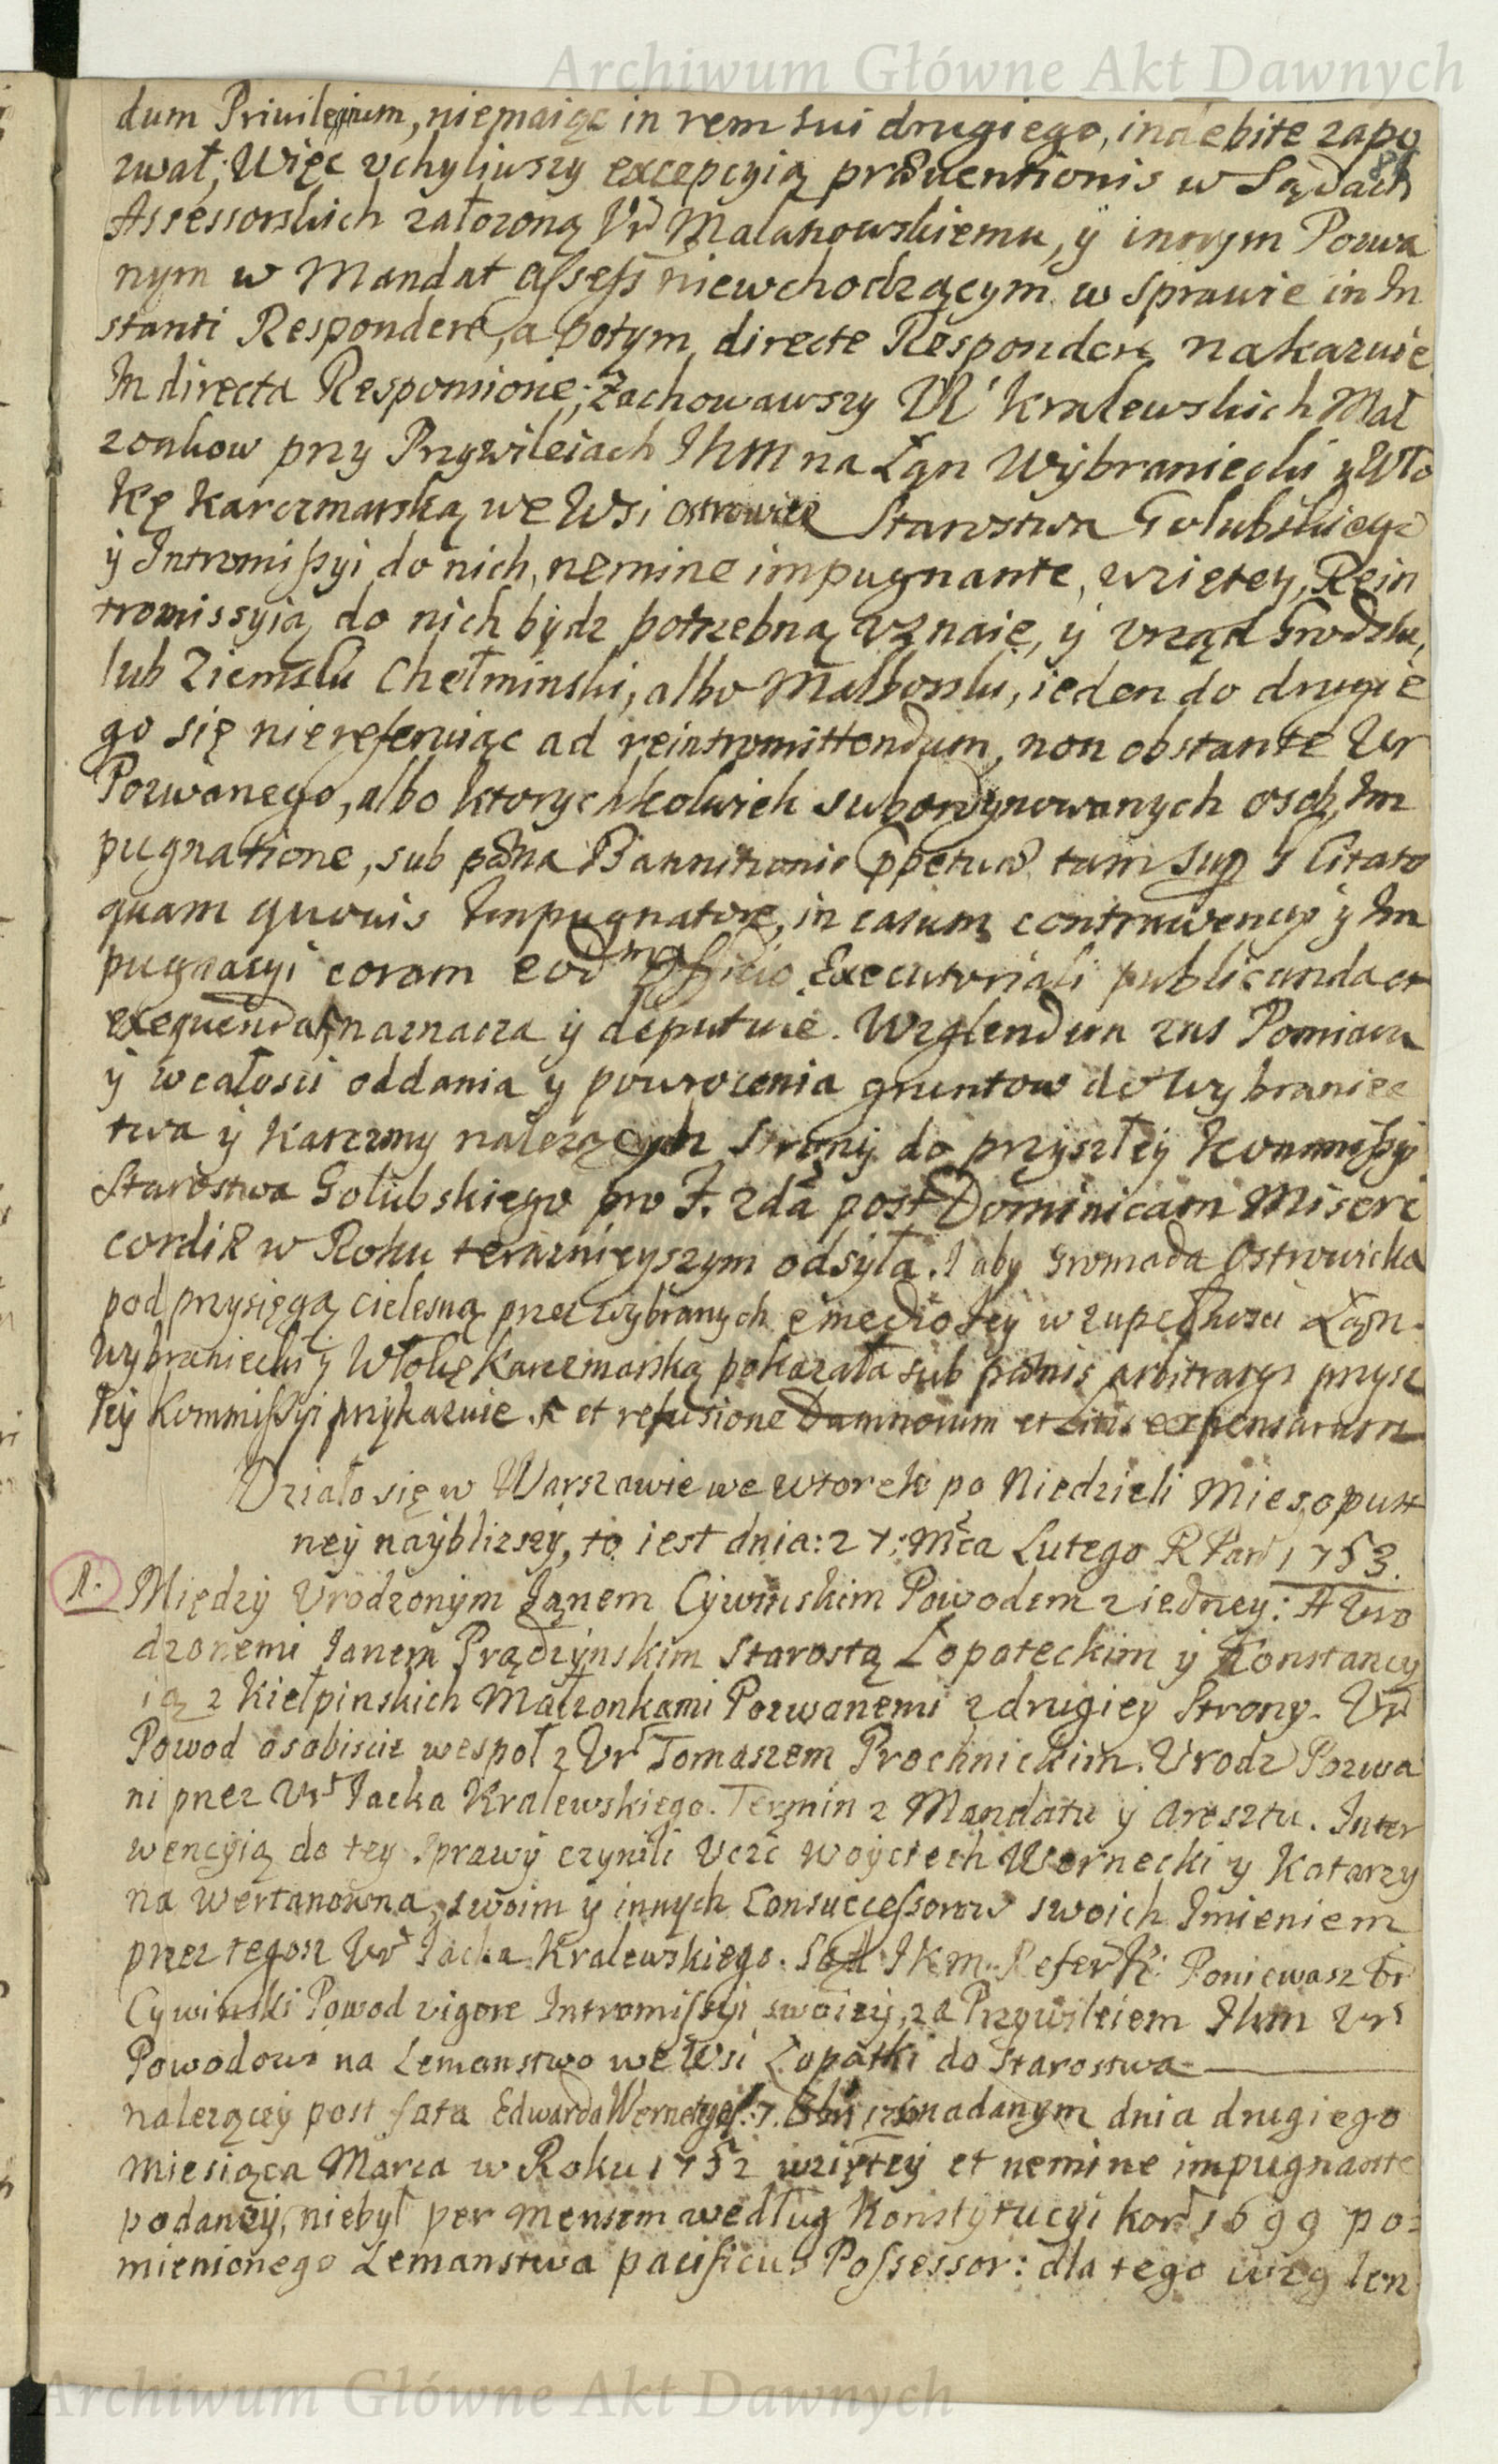 Archiwum Główne Akt Dawnych
dum Privilegium, niemaiąc in rem sui drugiego, indebite zapo
zwał; Więc vchyliwszy excepcyią præventionis w Sądach
Assessorskich założoną Vr Malanowskiemu, ÿ innym Pozwa
nym w Mandat Assess niewchodzącym w Sprawie in In
stanti Respondere, a potym directe Respondere nakazuie.
In directa Responsione; Zachowawszy UU Kralewskich Mał
zonkow przy Przywileiach JKM na Łan Wybraniecki y Wło
kę Karczmarską we Wsi Ostrowite Starostwa Golubskiego
ÿ Intromissyi do nich, nemine impugnante, wziętey, Rein
tromissyią do nich bydz potrzebną vznaie, ÿ vrząd Grodzki,
lub Ziemski Chełminski, albo Malborski, ieden do drugie
go się niereferuiąc ad reintromittendum, non obstante Ur
Pozwanego, albo ktorychkolwiek subordynowanych osob, Im
pugnatione, sub pæna Bannitionis ppetuæ tam sup Citato
quam quovis Impugnatore, in casum contrawencyi ÿ Im
pugnacyi coram eodm Officio Executoriali publicanda et
exequenda, naznacza ÿ deputuie. Wzglendem zas Pomiaru
ÿ wcałosci oddania y powrocenia gruntow do Wybraniec
twa ÿ Karczmy nalezących Strony do przyszłey Kommissyi
Starostwa Golubskiego pro F. 2da post Dominicam Miseri
cordiæ w Roku teraznieyszym odsyła. I aby Gromada Ostrowicka
pod przysięgą cielesną przez wybranych e medio tey w zupełnosci Łan
Wybraniecki ÿ Włokę Karczmarską pokazała sub pænis arbitrarys przysz
łey Kommissyi przykazuie. et refusione Damnorum et litis expensarum
Działo się w Warszawie we wtorek po Niedzieli Miesopust
neÿ naÿblizszy, to iest dnia: 27: Mca Lutego R Pan 1753.
1. Międzÿ Vrodzonym Janem Cÿwinskim Powodem z iedney: A Uro
dzonemi Janem Prądzÿnskim Starostą Łopateckim ÿ Konstancy
ią z Kiełpinskich Małzonkami Pozwanemi z drugiey Strony. Ur
Powod osobiscie wespoł z Ur Tomaszem Prochnickim. Urodz Pozwa
ni przez Ur Jacka Kralewskiego. Termin z Mandatu ÿ Aresztu. Inter
wencyią do tey Sprawÿ czynili Ucz Woyciech Wernecki y Katarzy
na Wertanowna, swoim ÿ innych Consuccessorow swoich Imieniem
przez tegosz Ur Jacka Kralewskiego. Sąd JKM Refer K: Poniewasz Ur
Cywinski Powod vigore Intromissyi swoiey, za Przywileiem JKM Ur
Powodowi na Lemanstwo we Wsi Łopatki do Starostwa
nalezącey post fata Edwarda Werneckego nadanym dnia drugiego
miesiąca Marca w Roku 1752 wziętey et nemine impugnante
podaney, niebył per mensem według Konstytucyi kor 1699 po=
mienionego Lemanstwa pacificus Possessor: dla tego wzglen
Archiwum Główne Akt Dawnych